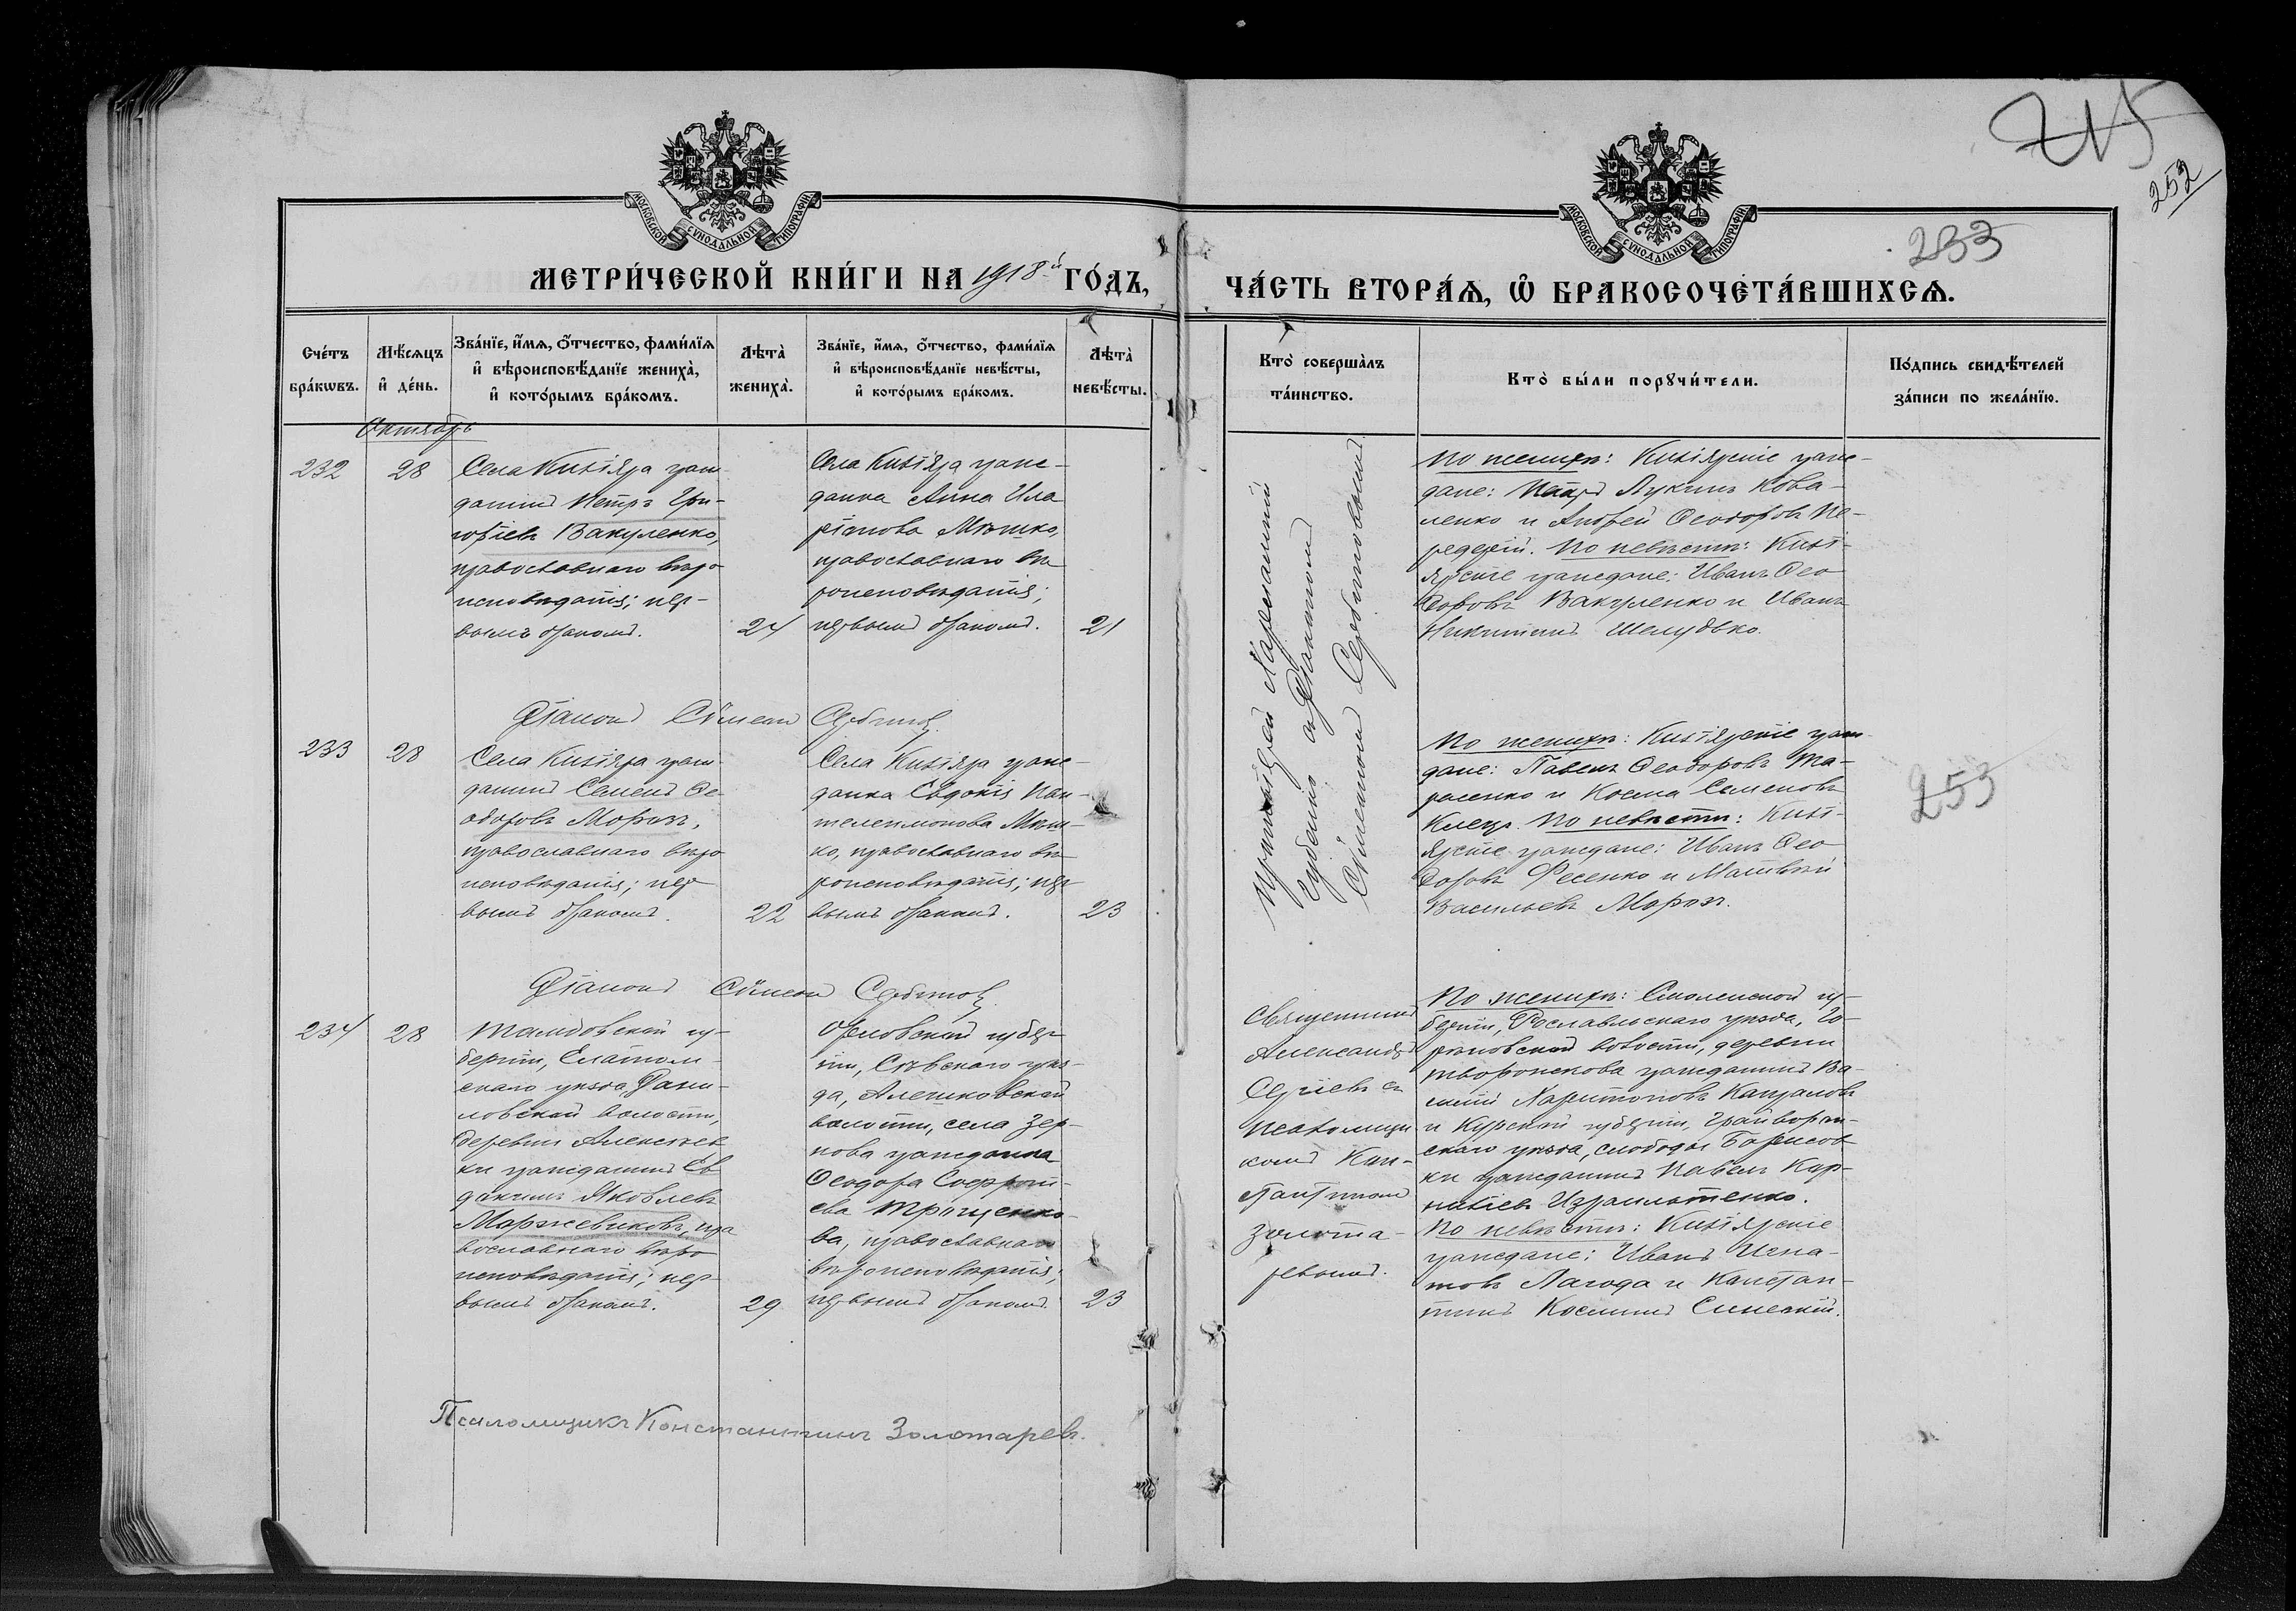 215
252
233
МОСКОВСКОЙ СУНОДАЛЬНОЙ ТИПОГРАФІИ
МОСКОВСКОЙ СУНОДАЛЬНОЙ ТИПОГРАФІИ
МЕТРИ́ЧЕСКОЙ КНИ́ГИ НА 1918й ГО́ДЪ,
ЧА́СТЬ ВТОРА́Ѧ, Ѡ БРАКОСОЧЕТА́ВШИХСѦ.
Сче́тъ
бра́кѡвъ.
Мѣ́сѧцъ
и҆ де́нь.
Зва́нїе, и҆́мѧ, ѻ҆́тчество, фами́лїѧ
и҆ вѣроисповѣ́данїе жениха̀,
и҆ кото́рымъ бра́комъ.
Лѣта̀
жениха̀.
Зва́нїе, и҆́мѧ, ѻ҆́тчество, фами́лїѧ
и҆ вѣроисповѣ́данїе невѣ́сты,
и҆ кото́рымъ бра́комъ.
Лѣта̀
невѣ́сты.
Кто̀ соверша́лъ
та́инство.
Кто̀ бы́ли порꙋчи́тели.
По́дпись свидѣ́телей
за́писи по жела́нїю.
Октябрь
232
28
Села Кизіяра граж-
данинъ Петръ Гри-
горіевъ Вакуленко,
православнаго вѣро
исповѣданія; пер-
вымъ бракомъ.
24
Села Кизіяра граж-
данка Анна Ила
ріонова Мѣшко,
православнаго вѣ
роисповѣданія;
первымъ бракомъ.
21
Протоіерей
съ Діакономъ
Сѵмеономъ Сербиновымъ
По женихѣ: Кизіярскіе граж-
дане: Петръ Лукинъ Кова-
ленко и Андрей Ѳеодоровъ Пе-
редерій. По невѣстѣ: Кизі-
ярскіе граждане: Иванъ Ѳео
доровъ Вакуленко и Иванъ
Никитинъ Шелудько.
Діаконъ Сѵмеон Сербинов
233
28
Села Кизіяра граж-
данинъ Семенъ Ѳе-
одоровъ Морозъ,
православнаго вѣро
исповѣданія; пер
вымъ бракомъ.
22
Села Кизіяра граж-
данка Евдокія Пан-
телеимонова Мѣш-
ко, православнаго вѣ
роисповѣданія; пер
вымъ бракомъ.
23
По женихѣ: Кизіярскіе граж
дане: Павелъ Ѳеодоровъ Та-
расенко и Косма Семеновъ
По невѣстѣ: Кизі-
ярскіе граждане: Иванъ Ѳео
доровъ Фесенко и Матвѣй
Васильевъ Морозъ.
253
Діаконъ Сѵмеон Сербинов
234
28
Тамбовской гу-
берніи, Елатом-
скаго уѣзда, Дани-
ловской волости,
деревни Алексѣев
ки гражданинъ Ев
докимъ Яковлевъ
Моржевиковъ, пра
вославнаго вѣро
исповѣданія; пер-
вымъ бракомъ.
29
Орловской губер
ніи, Сѣвскаго уѣз-
да, Алешковской
волости, села Зер-
нова гражданка
Ѳеодора Софрoні-
ева Трощенко-
ва, православнаго
вѣроисповѣданія;
первымъ бракомъ.
23
Священникъ
Александръ
Сергіевъ съ
псаломщи
комъ Кон-
стантином
Золота-
ревымъ.
По женихѣ: Смоленской гу-
берніи, Рославльскаго уѣзда,
волости, деревни
гражданинъ Ва-
силій Харитоновъ
и Курской губерніи, Грайворон-
скаго уѣзда, слободы Борисов
ки гражданинъ Павелъ Кор-
ниліевъ Израильтенко.
По невѣстѣ: Кизіярскіе
граждане: Иванъ Игна-
товъ Лагода и Констан-
тинъ Косминъ Синескій.
Псаломщикъ Константинъ Золотаревъ.